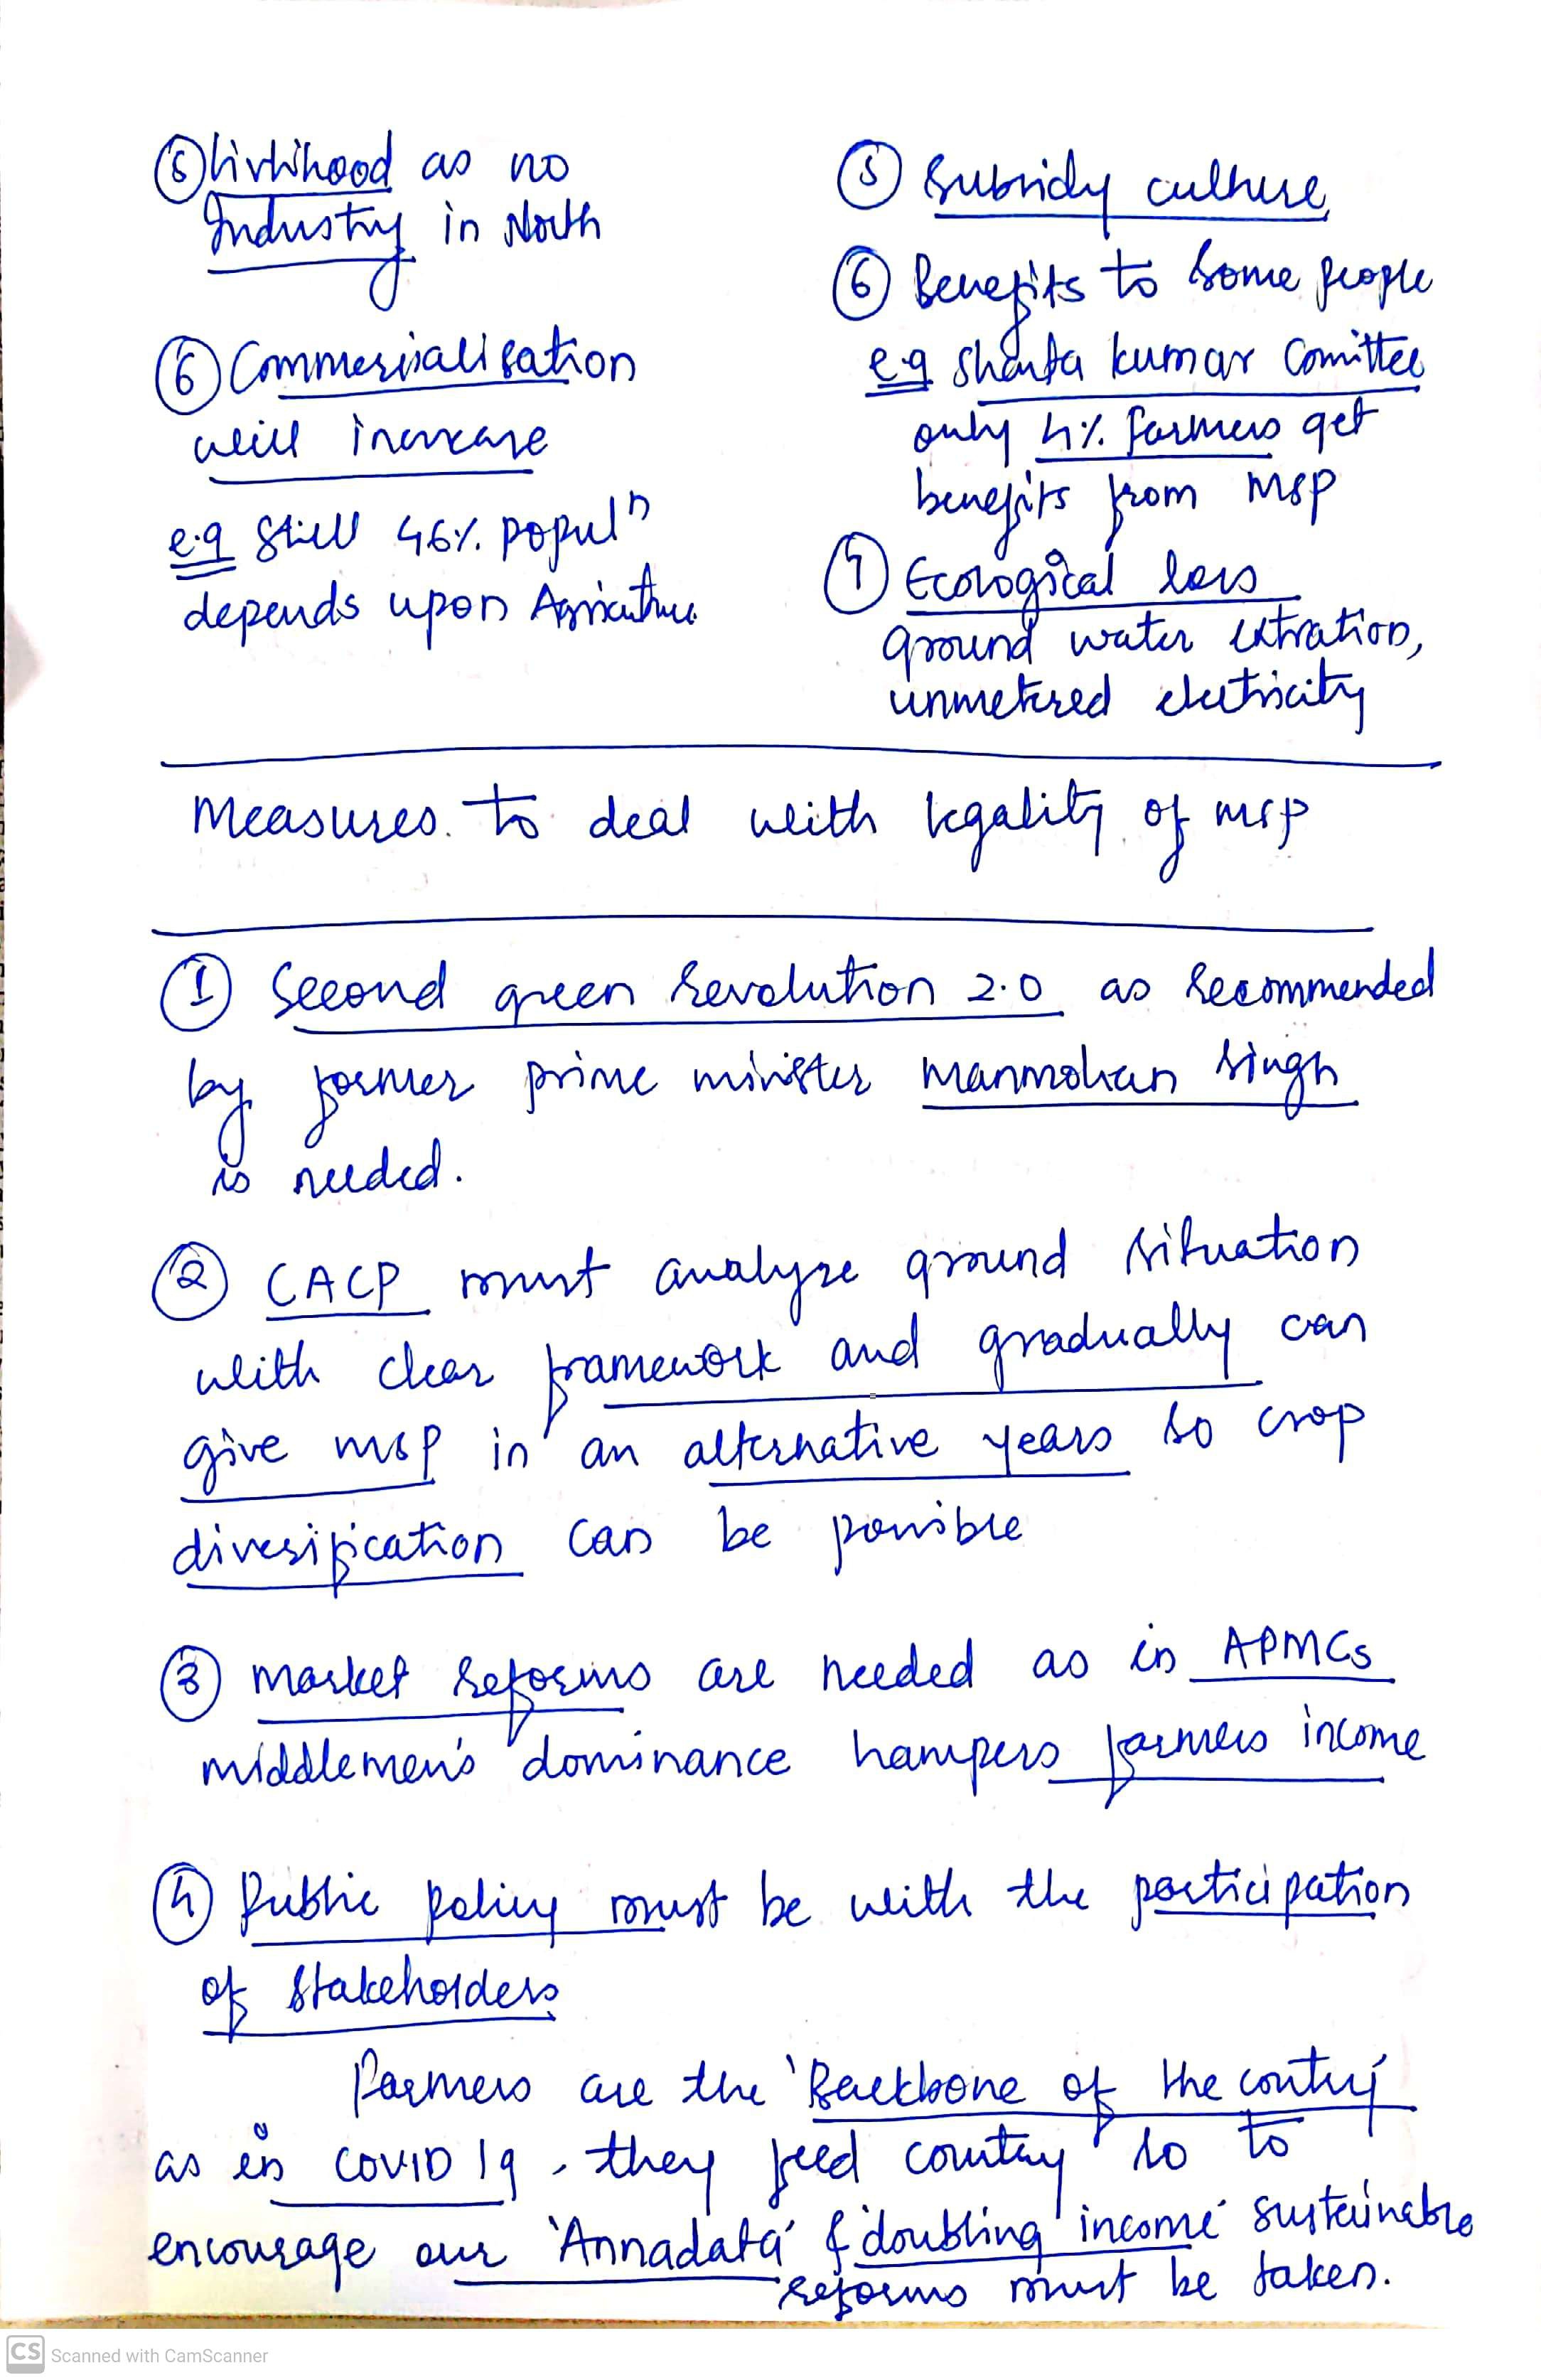 ⑤ livlihood as no
Industry in North
⑥ Commercialisation
will increase
e.g still 46% populⁿ
depends upon Agriculture
⑤ Subsidy culture
⑥ Benefits to some people
e.g Shanta kumar Comittee
only 4% farmers get
benefits from MSP
⑦ Ecological loss
ground water extration,
unmetered electricity
Measures to deal with legality of MSP
① Second green Revolution 2.0 as Recommended
by former prime minister Manmohan Singh
is needed.
② CACP must analyse ground situation
with clear framework and gradually can
give MSP in an alternative years so crop
diversification can be possible
③ Market Reforms are needed as in APMCs
middlemen's dominance hampers farmers income
④ Public policy must be with the participation
of Stakeholders
Farmers are the 'Backbone of the contry'
as in COVID 19, they feed country so to
encourage our 'Annadata' & 'doubling income' sustainable
reforms must be taken.
CS Scanned with CamScanner